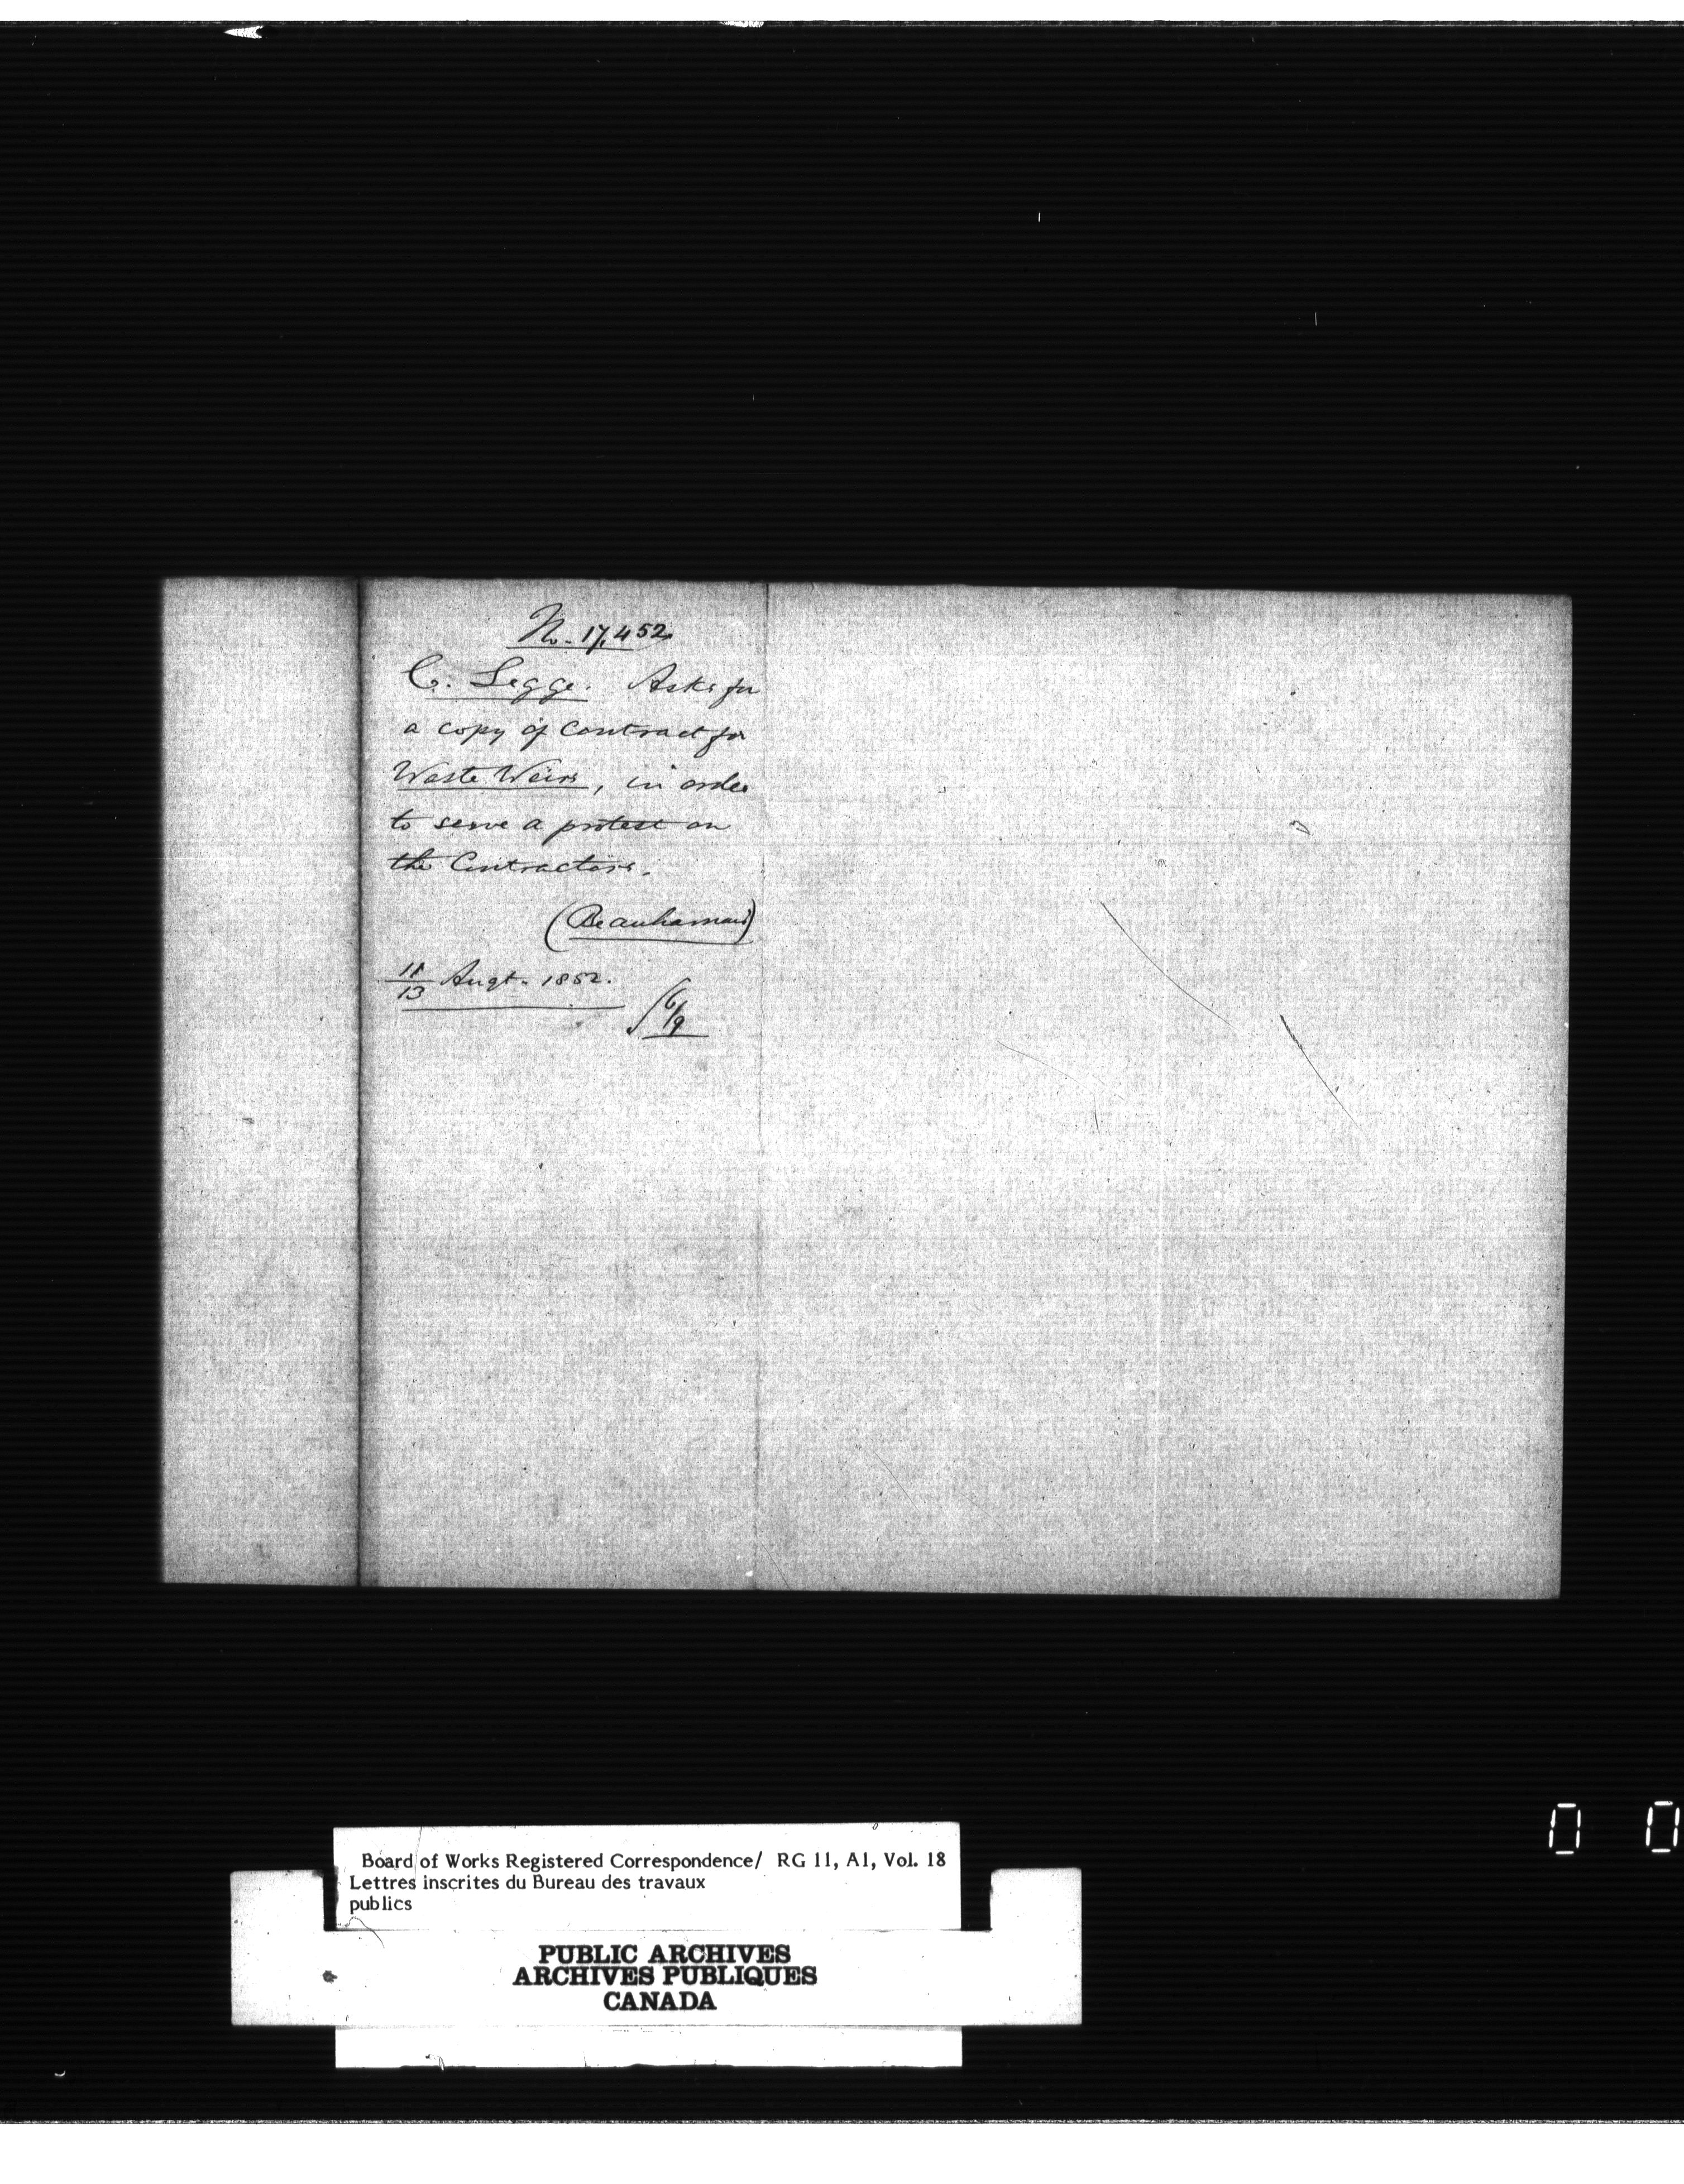 No. 17,452
C. Legge. Asks for
a copy of Contract for
Waste Weirs, in order
to serve a protest on
the Contractors.
(Beauharnois)
11/13 Augt. 1852.
6/9
Board of Works Registered Correspondence/ RG 11, A1, Vol. 18
Lettres inscrites du Bureau des travaux
publics
PUBLIC ARCHIVES
ARCHIVES PUBLIQUES
CANADA
0 0